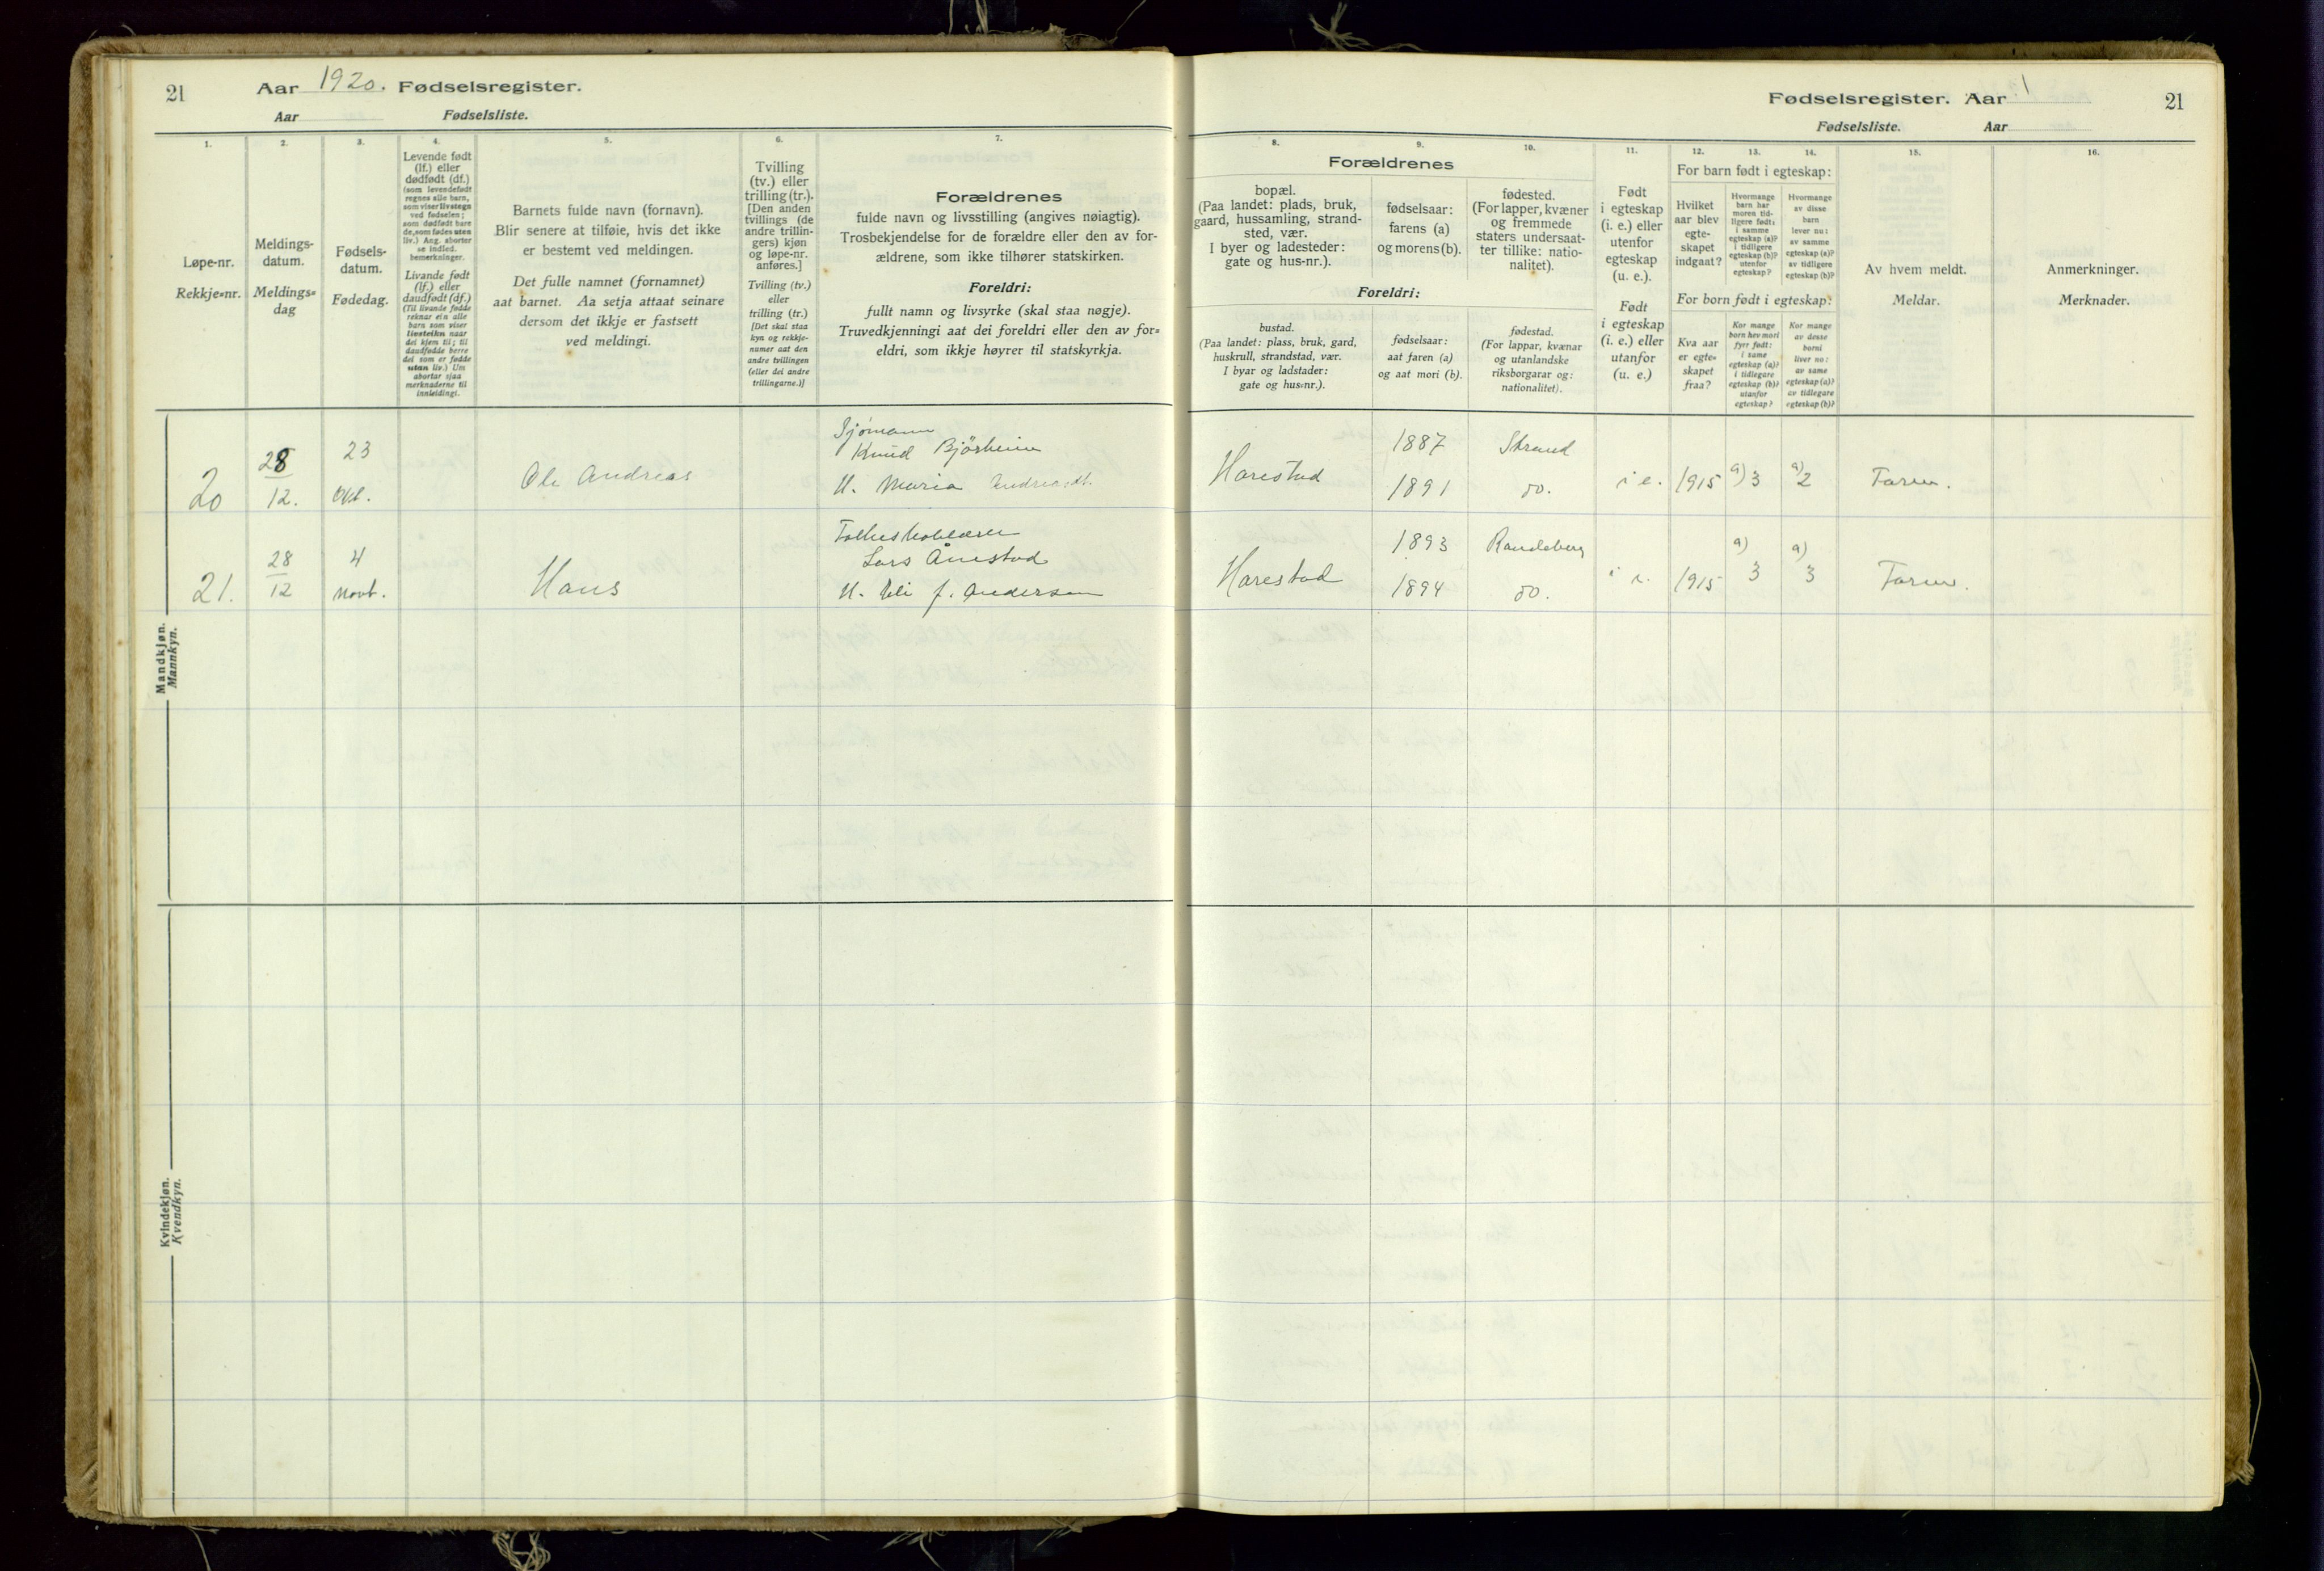 21
Aar 1920. Fødselsregister.
Aar Fødselsliste.
1.
Løpe-nr.
Rekkje=nr.
2.
Meldings-
datum.
Meldings=
dag
3.
Fødsels-
datum.
Fødedag.
4.
Levende født
(lf.) eller
dødfødt (df.)
(som levendefødt
regnes alle barn,
som viser livstegn
ved fødselen;
som dødfødt bare
de, som fødes uten
liv.) Ang. aborter
se indled.
bemerkninger.
Livande født
(lf.) eller
daudfødt (df.)
(Til livande fødde
reknar ein alle
barn som viser
livsteikn naar
dei kjem til; til
daudfødde berre
dei som er fødde
utan liv.) Um
abortar sjaa
merknaderne til
innleidingi.
5.
Barnets fulde navn (fornavn).
Blir senere at tilføie, hvis det ikke
er bestemt ved meldingen.
Det fulle namnet (fornamnet)
aat barnet. Aa setja attaat seinare
dersom det ikkje er fastsett
ved meldingi.
6.
Tvilling
(tv.) eller
trilling (tr.).
[Den anden
tvillings (de
andre trillin-
gers) kjøn
og løpe-nr.
anføres.]
Tvilling (tv.)
eller
trilling (tr.)
[Det skal staa
kyn og rekkje-
numer aat den
andre tvillingen
(eller dei andre
trillingarne.)]
7.
Forældrenes
fulde navn og livsstilling (angives nøiagtig).
Trosbekjendelse for de forældre eller den av for-
ældrene, som ikke tilhører statskirken.
Foreldri:
fullt namn og livsyrke (skal staa nøgje).
Truvedkjenningi aat dei foreldri eller den av for=
eldri, som ikkje høyrer til statskyrkja.
Mandkjøn.
Mannkyn.
20
28
12.
23
Okt.
Ole Andreas
Sjømann
Knud Bjørheim
H. Maria Andreasdt.
21.
28
12
4
Novb.
Hans
Folkeskolelærer
Lars Ånestad
H. Eli J. Andersen
Kvindekjøn.
Kvendkyn.
Fødselsregister. Aar
21
Fødselsliste. Aar
8.
Forældrenes
bopæl.
(Paa landet: plads, bruk,
gaard, hussamling, strand-
sted, vær.
I byer og ladesteder:
gate og hus-nr.).
Foreldri:
bustad.
(Paa landet: plass, bruk, gard,
huskrull, strandstad, vær.
I byar og ladstader:
gate og hus=nr.).
9.
fødselsaar:
farens (a)
og morens (b).
fødselsaar:
aat faren (a)
og aat mori (b).
10.
fødested.
(For lapper, kvæner
og fremmede
staters undersaat-
ter tillike: natio-
nalitet).
fødestad.
(For lappar, kvænar
og utanlandske
riksborgarar og:
nationalitet).
11.
Født
i egteskap
(i. e.) eller
utenfor
egteskap
(u. e.).
Født
i egteskap
(i. e.) eller
utanfor
(u. e.)
12. 13. 14.
For barn født i egteskap:
Hvilket
aar blev
egte-
skapet
indgaat?
Hvormange
barn har
moren tid-
ligere født:
i samme
egteskap (a)?
i tidligere
egteskap (b)?
utenfor
egteskap?
Hvormange
av disse
barn
lever nu:
av samme
egteskap (a)?
av tidligere
egteskap (b)?
For born født i egteskap:
Kva aar
er egte-
skapet
fraa?
Kor mange
born hev mori
fyrr født:
i same
egteskap (a)?
i tidlegare
egteskap (b)?
utanfor
egteskap?
Kor mange
av desse
borni
liver no:
av same
egteskap (a)?
av tidlegare
egteskap (b)?
15.
Av hvem meldt.
Meldar.
16.
Anmerkninger.
Merknader.
Harestad
1887
1891
Strand
do.
i e.
1915
a) 3
a) 2
Faren.
Harestad
1893
1894
Randeberg
do.
i e.
1915
a) 3
a) 3
Faren.